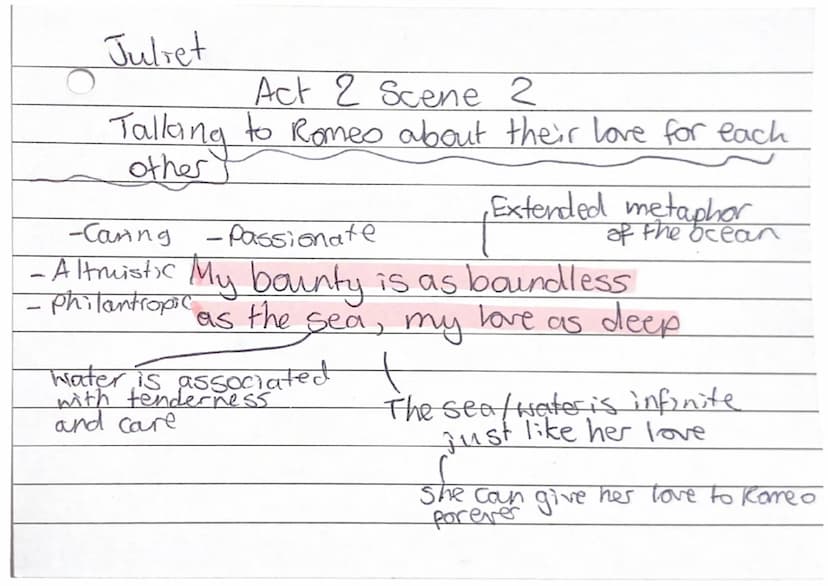 Juliet
Act 2 Scene 2
Talking to Romeo about their love for each
other
Extended metaphor
of the ocean
-Caring -Passionate
- Altruistic My bounty is as boundless
- Philantropic as the sea, my love as deep
Water is associated
with tenderness
and care
The sea/water is infinite
just like her love
She can give her love to Romeo
forever